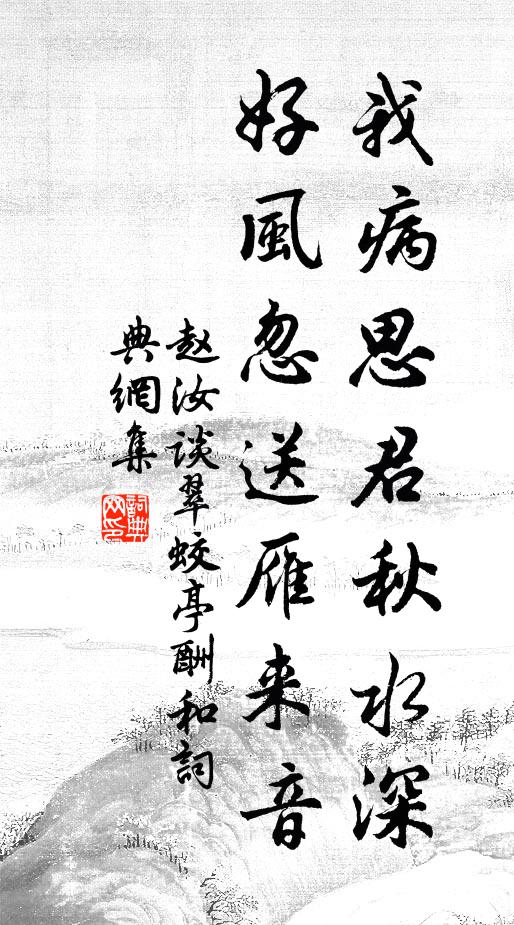 我病思君秋水深
好風忽送雁来音
赵汝谈翠蛟亭酬和詞
典網集
詞典